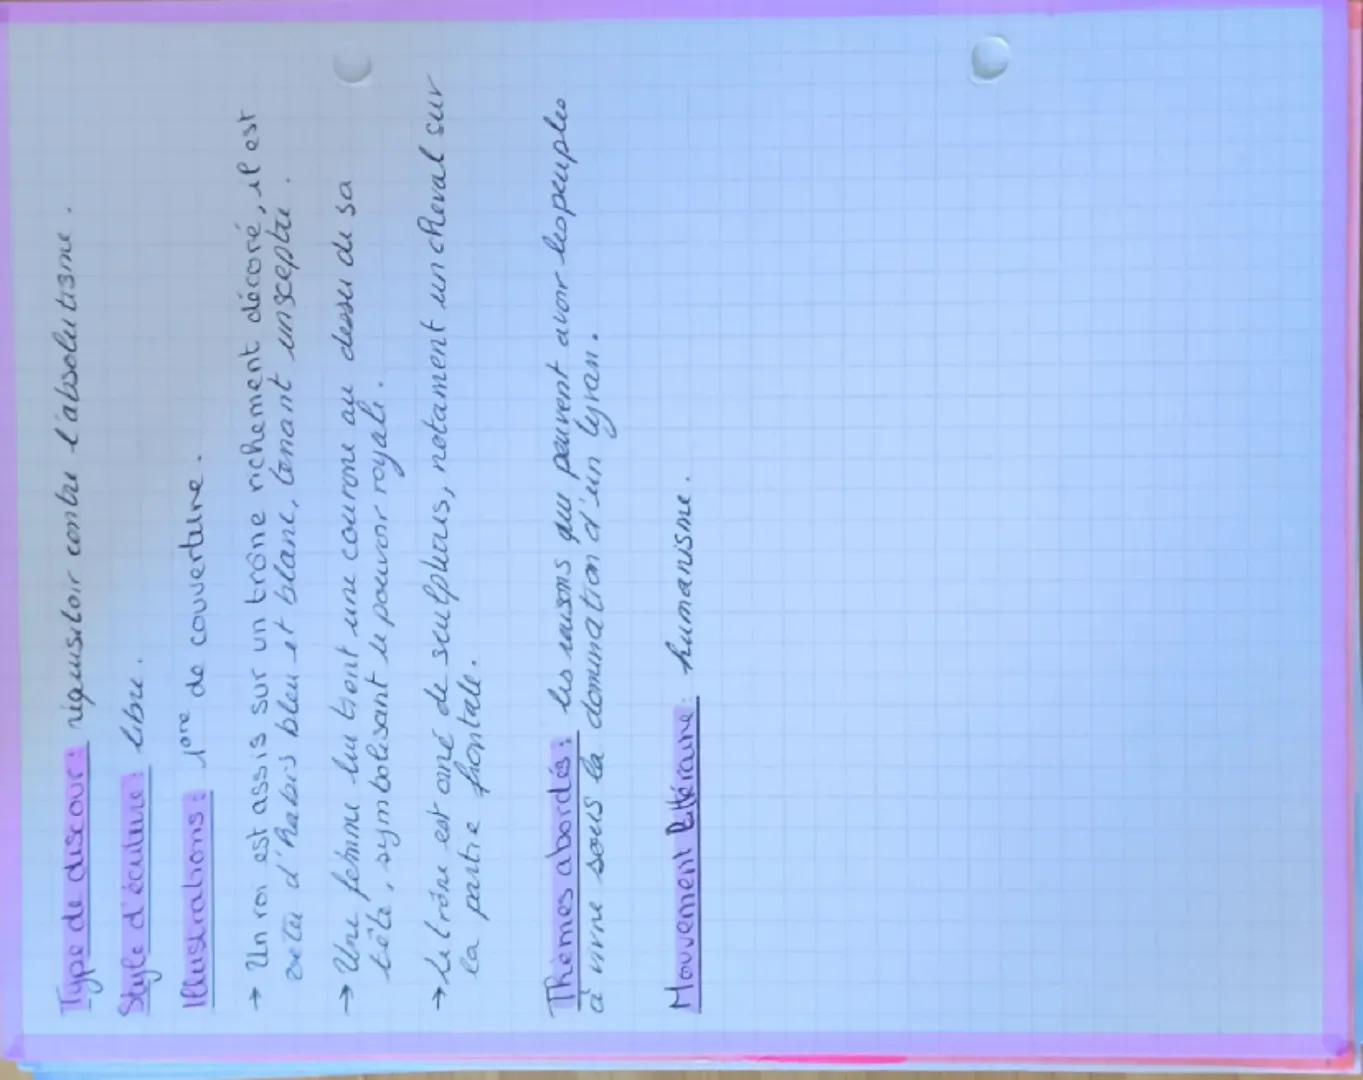 Type de discour : réquisitoir contre l'absolutisme.
Style d'écriture : libre.
Illustrations : 1ère de couverture.
→ Un roi est assis sur un trône richement décoré, il est
vetu d'habis bleu et blanc, tenant un sceptre.
→ Une femme lui tient une couronne au dessu de sa
tête, symbolisant le pouvoir royale.
→ Le trône est orné de sculptures, notament un cheval sur
la partie frontale.
Thèmes abordés : les raisons que peuvent avoir les peuples
à vivre sous la domination d'un tyran.
Mouvement littéraire : humanisme.